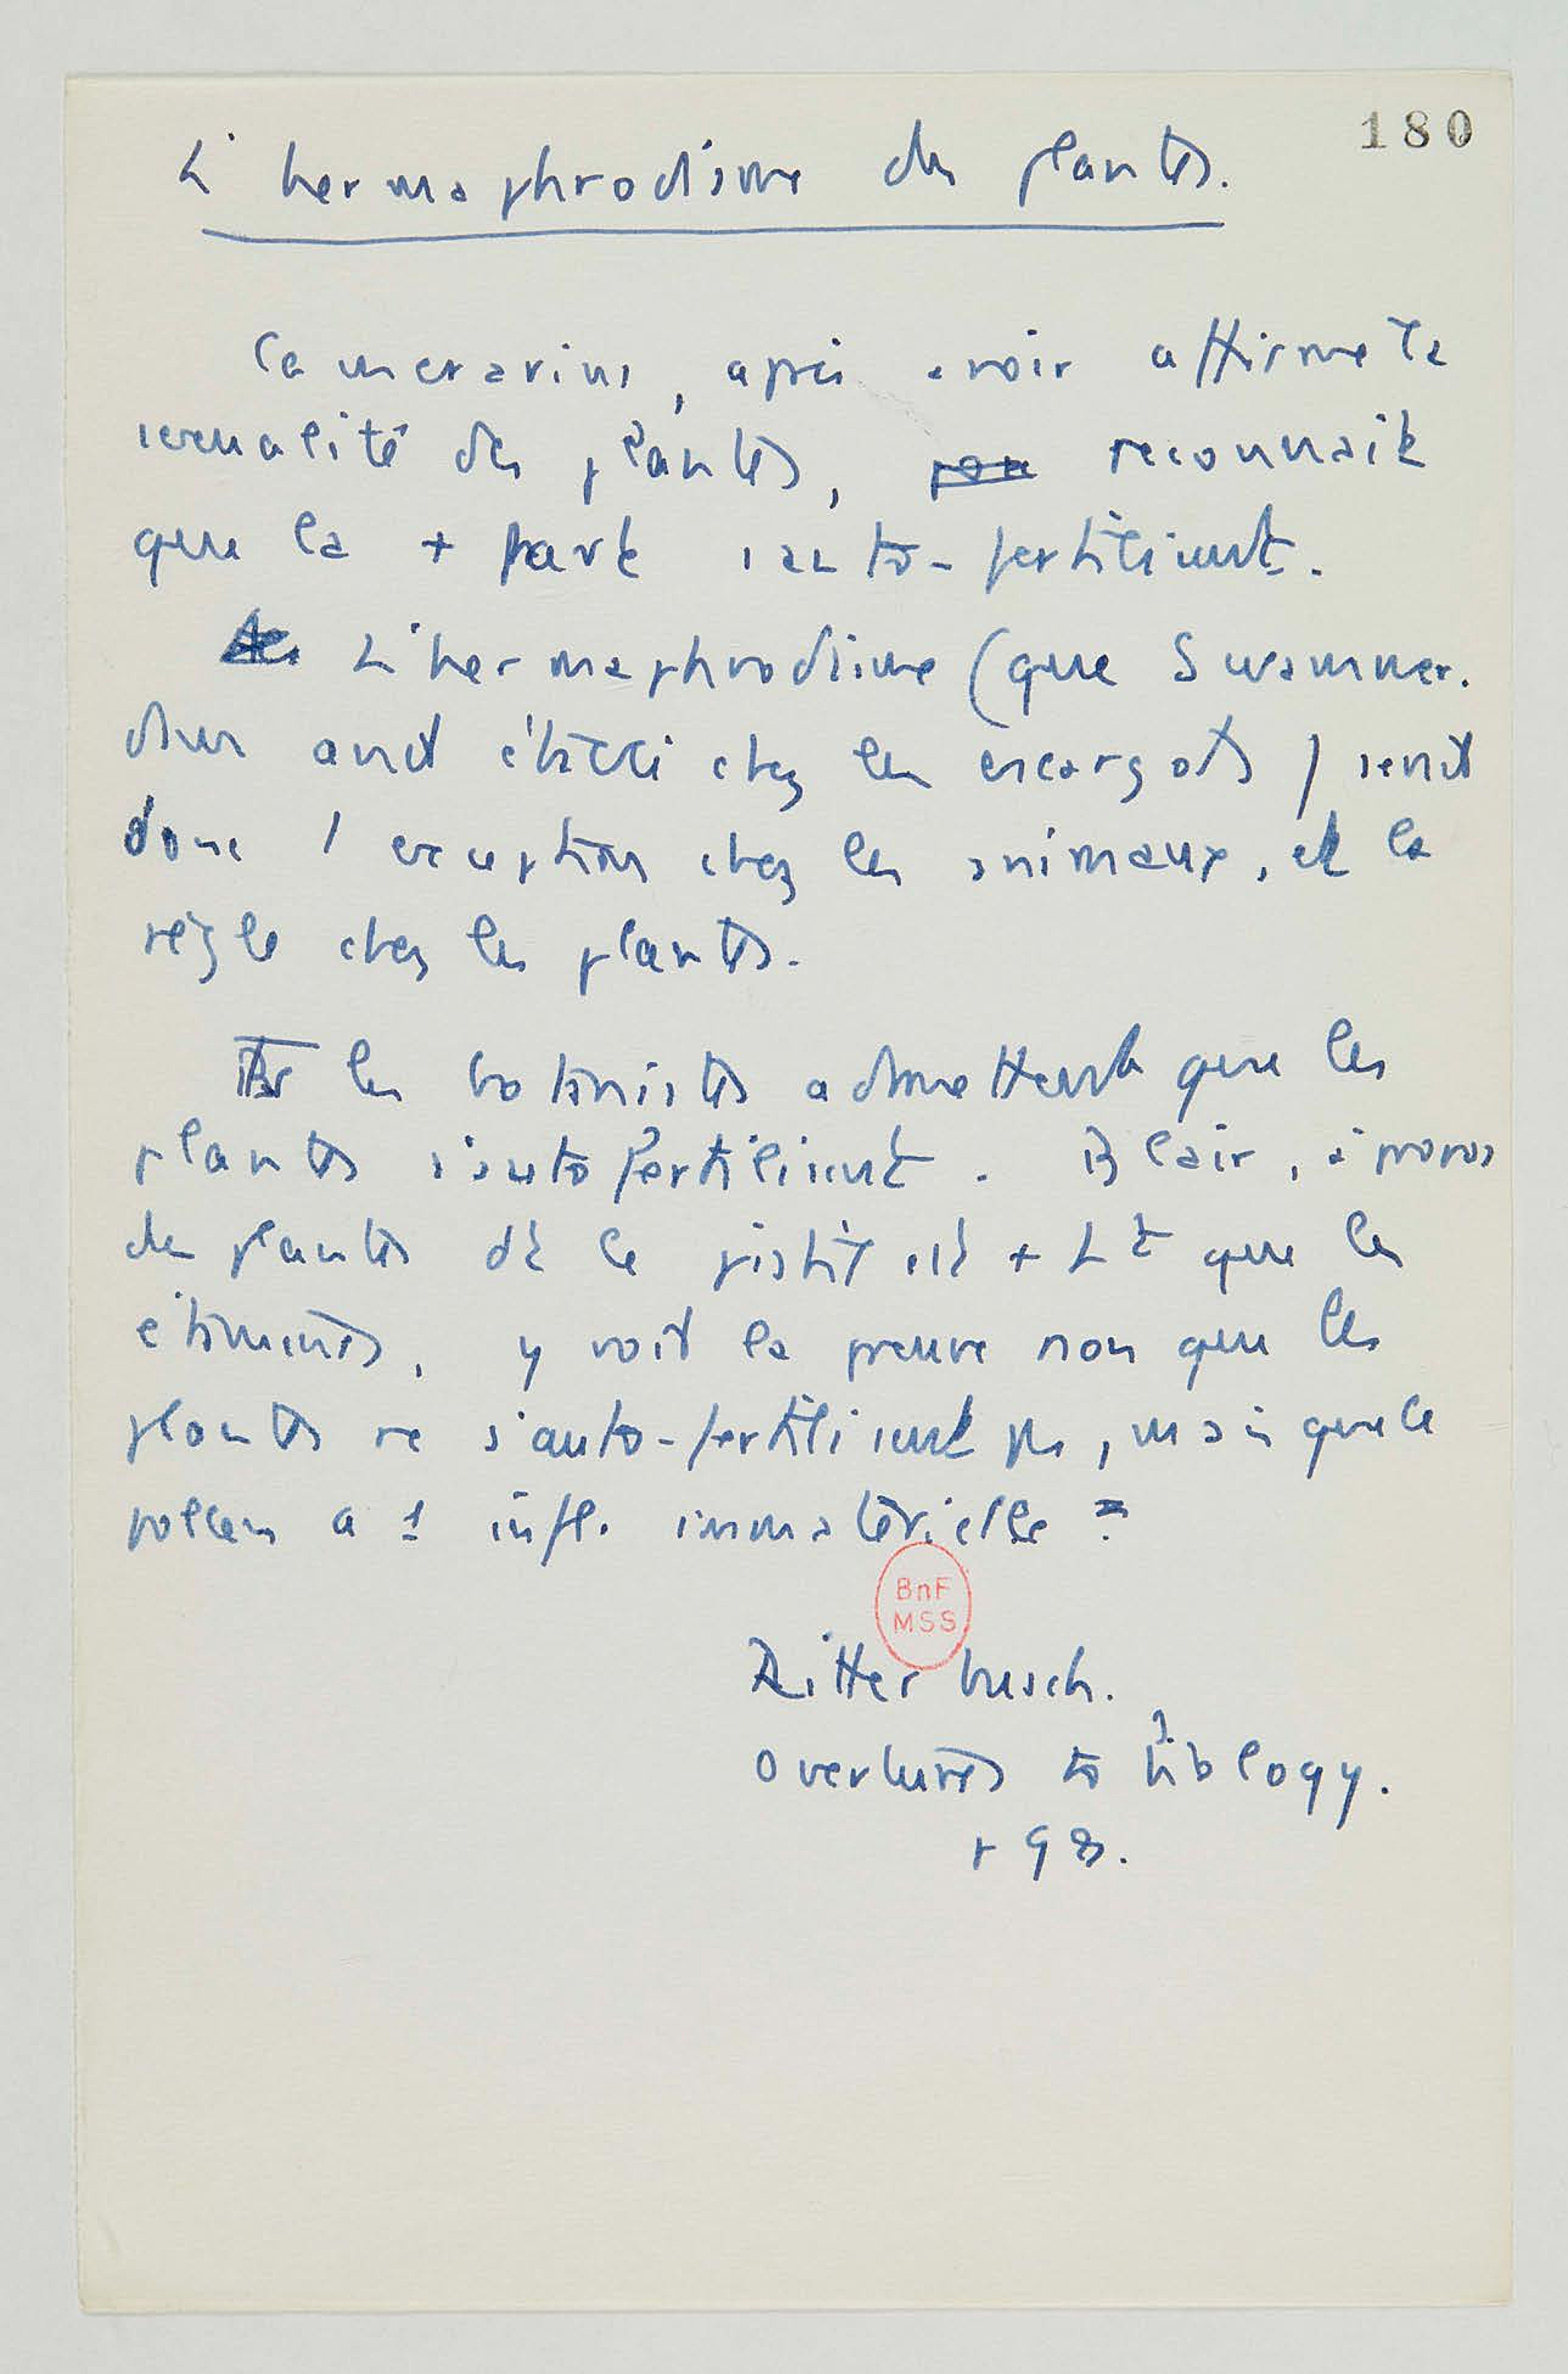 180
L'hermaphrodisme des plantes.
Camerarius, après avoir affirmé la
sexualité des plantes, pou reconnaît
que la + part s'auto-fertilisent.
L'hermaphrodisme (que Swammer.
dam avait établi chez les escargots) serait
donc l'exception chez les animaux, et la
règle chez les plantes.
Ts les botanistes admettent que les
plantes s'autofertilisent. Blair, à propos
des plantes dt le pistil est + Lt que les
étamines, y voit la preuve non que les
plantes ne s'auto-fertilisent pas, mais que le
pollen a 1 infl. immatérielle
BnF
MSS
Ritterbusch.
Overtures to biology.
p 98.